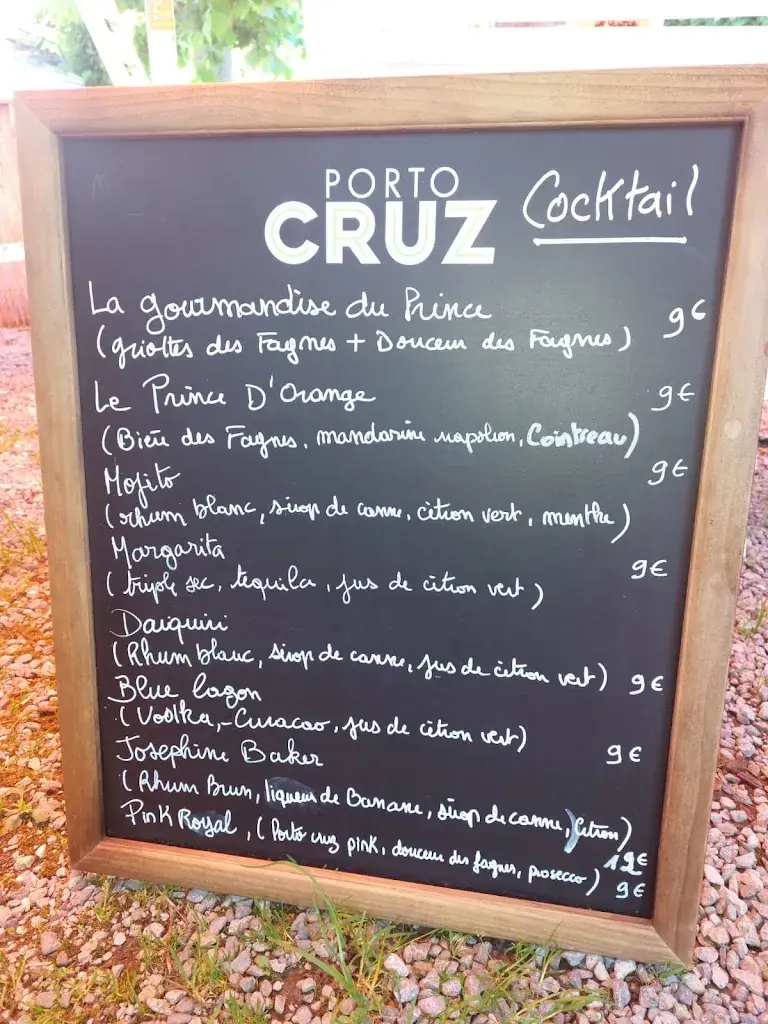 PORTO
CRUZ Cocktail
La gourmandise du Prince 9€
(griottes des Fagnes + Douceur des Fagnes)
Le Prince D'Orange 9€
(Bière des Fagnes, mandarine napoléon, Cointreau)
Mojito 9€
(rhum blanc, sirop de canne, citron vert, menthe)
Margarita 9€
(triple sec, tequila, jus de citron vert)
Daiquiri
(Rhum blanc, sirop de canne, jus de citron vert) 9€
Blue lagon
(Vodka, Curacao, jus de citron vert)
Josephine Baker 9€
(Rhum Brun, liqueur de Banane, sirop de canne, Citron)
12€
Pink Royal, (Porto cruz pink, douceur des fagnes, prosecco) 9€